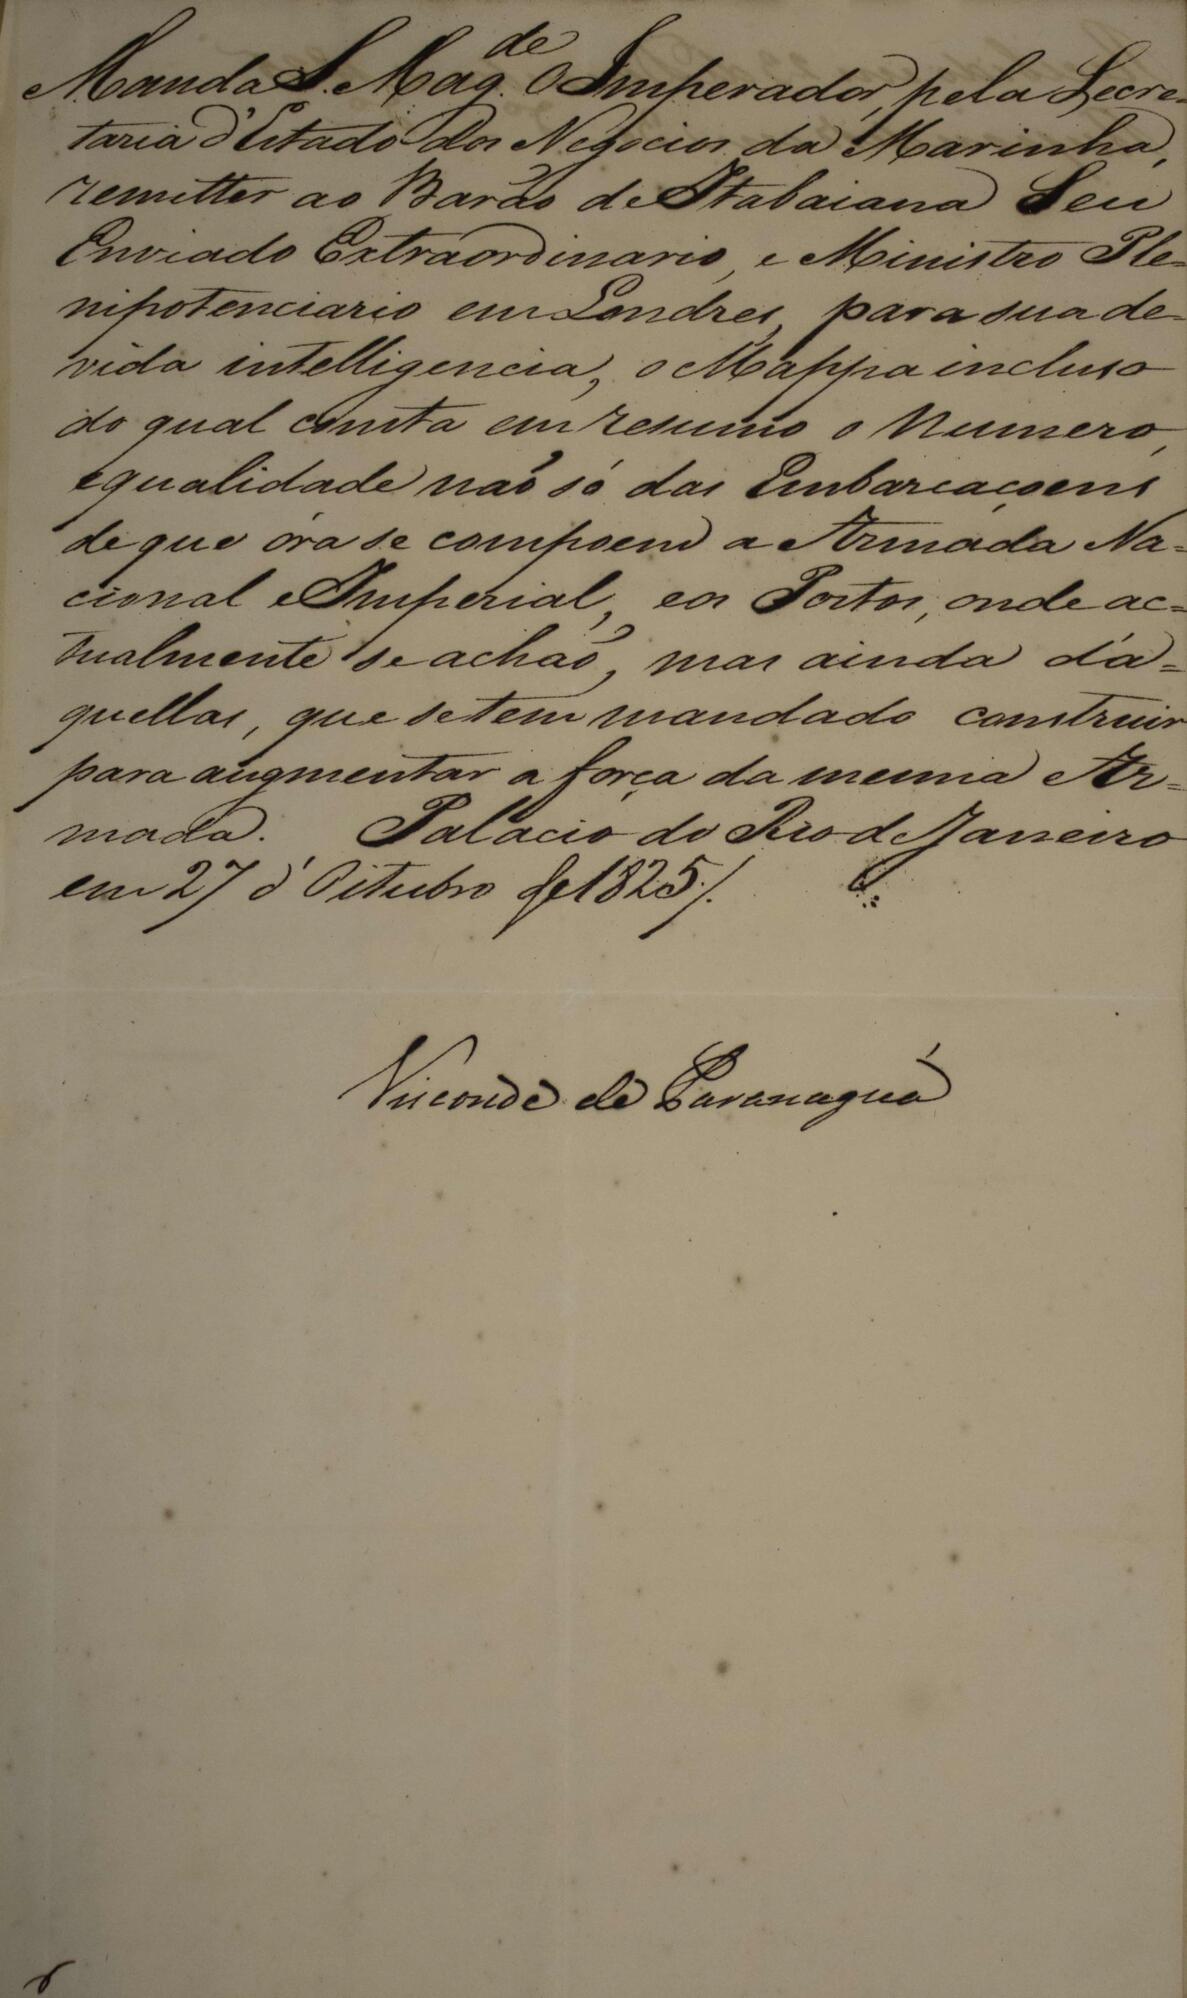 Manda S. Mag.de O Imperador, pela Secre=
taria d'Estado dos Negocios da Marinha,
remetter ao Barão de Itabaiana Seu
Enviado Extraordinario, e Ministro Ple=
nipotenciario em Londres, para sua de=
vida intelligencia, o Mappa incluso
do qual consta em resumo o Numero,
e qualidade não só das Embarcaçoens
de que óra se compoem a Armada Na=
cional e Imperial, e os Portos, onde ac=
tualmente se achão, mas ainda d'a=
quellas, que se tem mandado construir
para augmentar a força da mesma Ar=
mada. Palacio do Rio de Janeiro
em 27 d' Oitubro de 1825/.
Visconde de Paranaguá